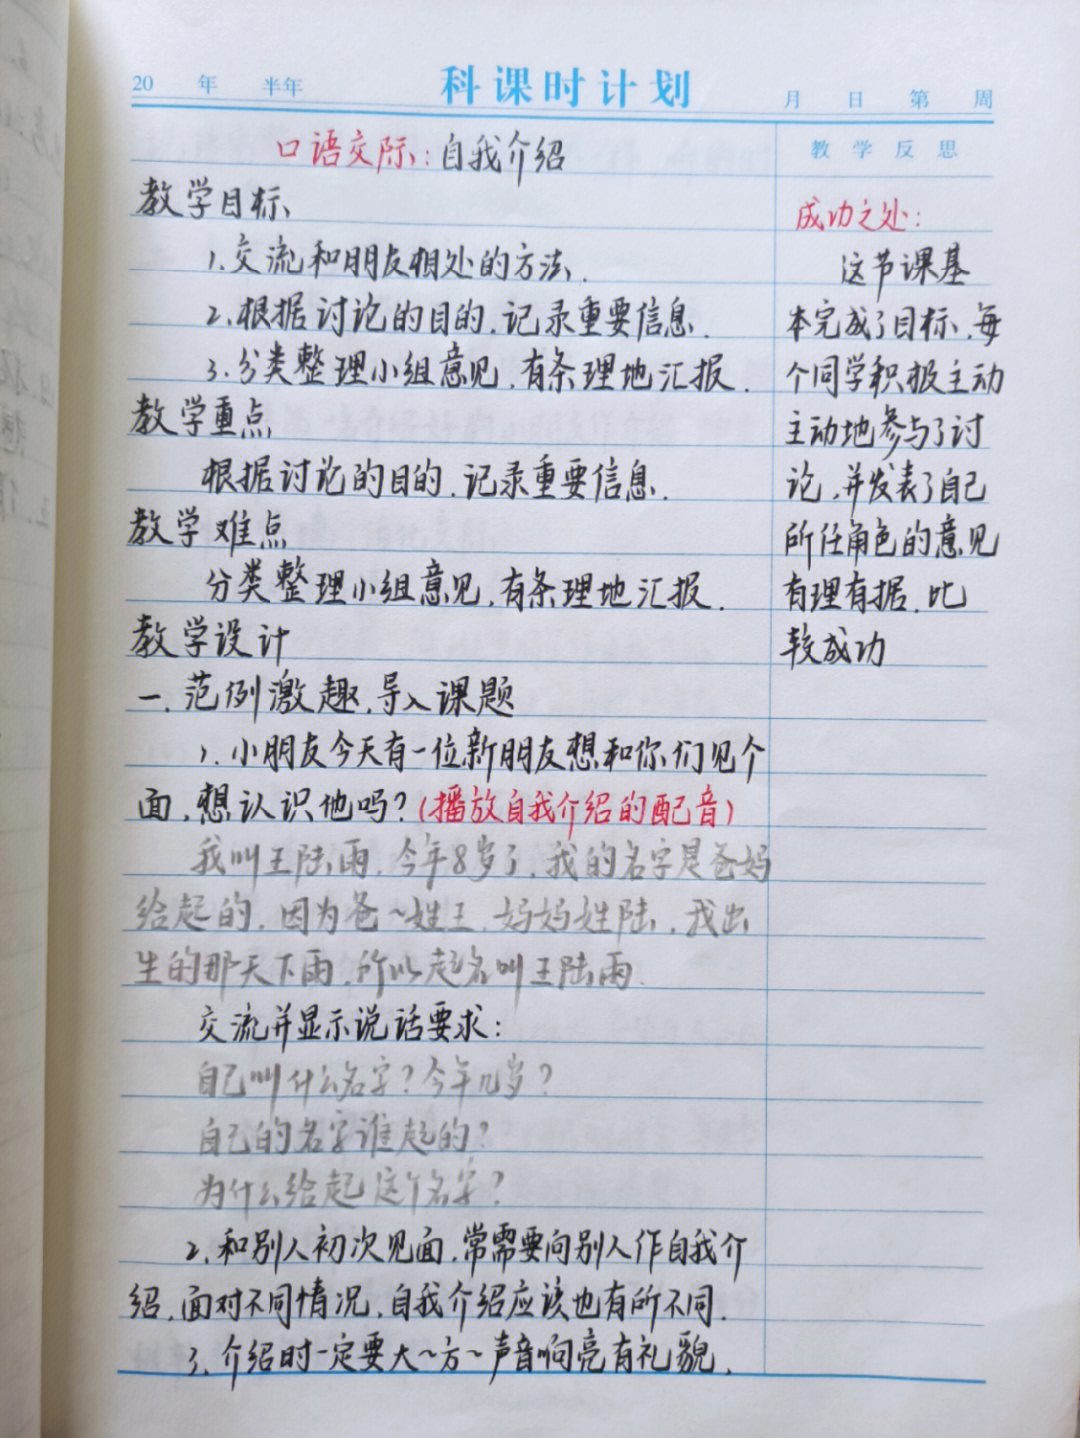 20 年 半年 科课时计划 月 日 第 周
口语交际:自我介绍
教学目标、
1.交流和朋友相处的方法.
2.根据讨论的目的.记录重要信息.
3.分类整理小组意见.有条理地汇报.
教学重点
根据讨论的目的.记录重要信息.
教学难点
分类整理小组意见.有条理地汇报.
教学设计
一.范例激趣.导入课题
1.小朋友今天有一位新朋友想和你们见个
面.想认识他吗?(播放自我介绍的配音)
我叫王陆雨.今年8岁了.我的名字是爸妈
给起的.因为爸~姓王.妈妈姓陆.我出
生的那天下雨.所以起名叫王陆雨.
交流并显示说话要求:
自己叫什么名字?今年几岁?
自己的名字谁起的?
为什么给起这个名字?
2.和别人初次见面.常需要向别人作自我介
绍.面对不同情况.自我介绍应该也有所不同.
3.介绍时一定要大~方~声音响亮有礼貌.
教学反思
成功之处:
这节课基
本完成了目标、每
个同学积极主动
主动地参与了讨
论.并发表了自己
所任角色的意见
有理有据.比
较成功